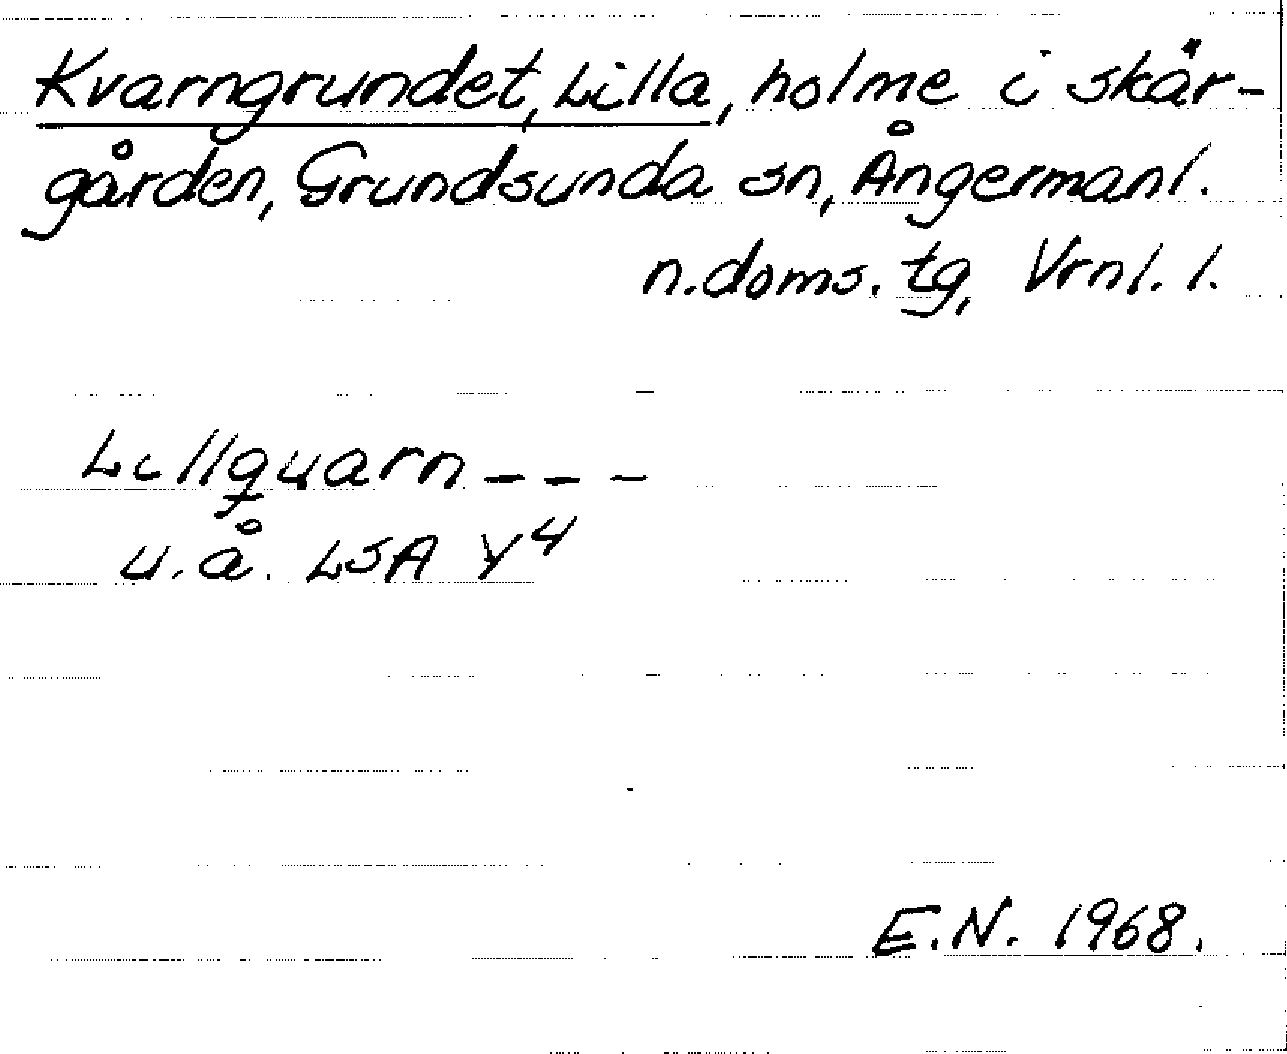 Kvarngrundet, Lilla, holme i skär-
gården, Grundsunda sn, Ångermanl.
n. doms. tg, Vrnl. l.
Lillquarn - - -
u. å. LSA Y4
E.N. 1968.